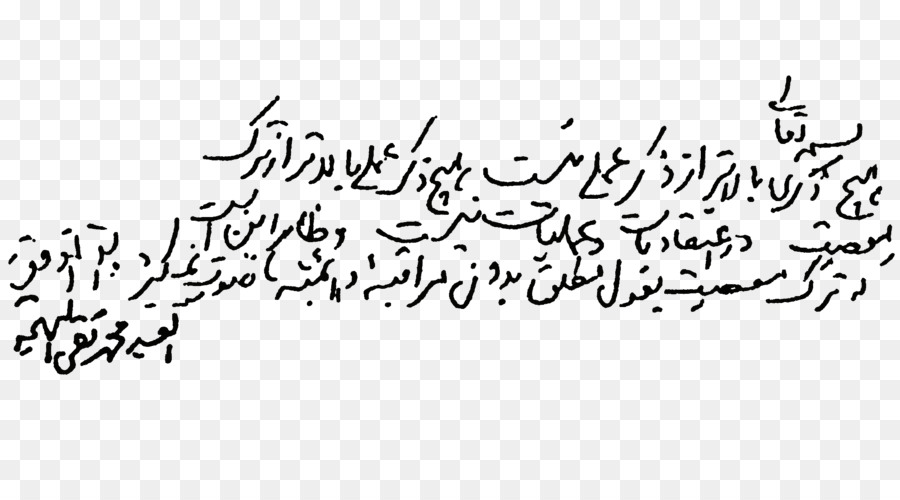 بسمه تعالی
هیچ ذکری بالاتر از ذکر عملی نیست هیچ ذکر عملی بالاتر از ترک
معصیت در اعتقادیات و عملیات نیست و ظاهر این است
که ترک معصیت بقول مطلق بدون مراقبهٔ دائمیه صورت نمیگیرد والله الموفق
العبد محمد تقی البهجة